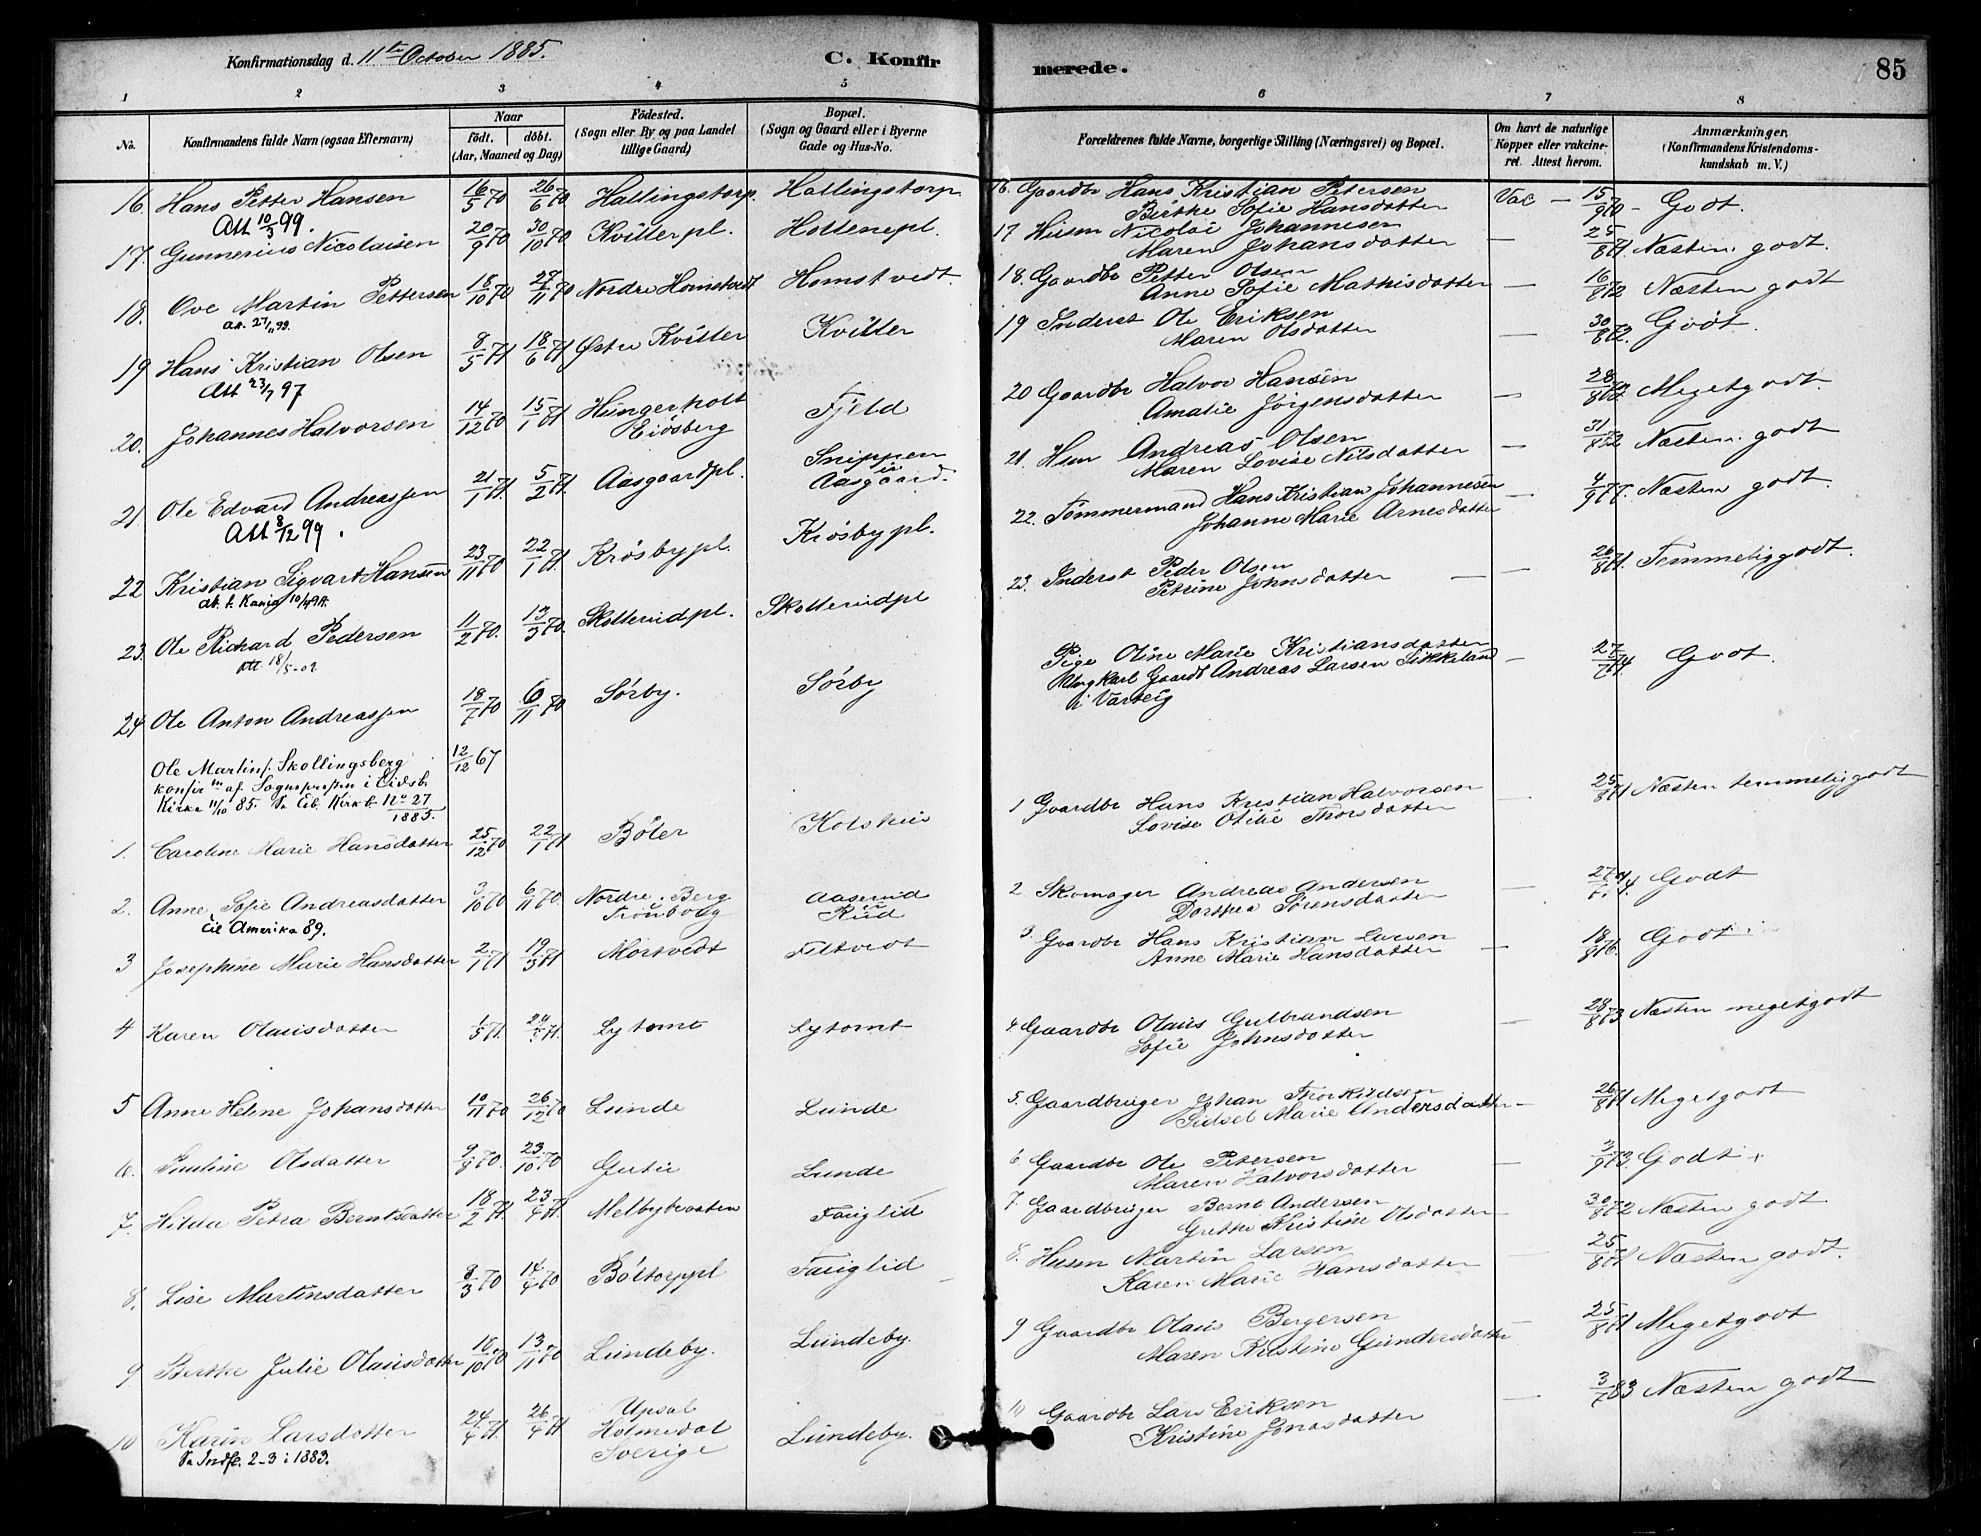 Konfirmationsdag d. 11te October 1885. C. Konfirmerede. 85
1 2 3 4 5 6 7 8
No. Konfirmandens fulde Navn (ogsaa Efternavn) Naar födt. döbt. (Aar, Maaned og Dag) Födested. (Sogn eller By og paa Landet tillige Gaard) Bopæl. (Sogn og Gaard eller i Byerne Gade og Hus-No. Forældrenes fulde Navne, borgerlige Stilling (Næringsvei) og Bopæl. Om havt de naturlige Kopper eller vakcineret. Attest herom. Anmærkninger. (Konfirmandens Kristendomskundskab m. V.)
16. Hans Petter Hansen 16/5 70 26/6 70 Hallingstorp. Hallingstorp 16. Gaardbr Hans Kristian Petersen Vac — 15/9 70 - Godt.
Att 10/3 99. Birthe Sofie Hansdatter
17. Gunnerius Nicolaisen 20/9 70 30/10 70 Kvitterpl. Hottenepl. 17 Husm Nicolai Johannesen — 25/8 71 Næsten godt.
Maren Johansdatter
18. Ove Martin Pettersen 18/10 70 27/11 70 Nordre Homstvedt Homstvedt 18. Gaardbr Petter Olsen — 16/8 72 Næsten godt
Att. 27/11 99. Anne Sofie Mathisdatter
19 Hans Kristian Olsen 8/5 71 18/6 71 Østre Kvitter Kvitter 19 Inderst Ole Eriksen — 30/8 72. Godt.
Att 23/7 97 Maren Olsdatter
20. Johannes Halvorsen 14/12 70 15/1 71 Hungerholt Eidsberg Fjeld 20 Gaardbr Halvor Hansen — 28/8 72 Megetgodt
Amalie Jörgensdatter
21 Ole Edvard Andreassen 21/1 71. 5/2 71. Aasgaardpl. Snippen u Aasgaard. 21. Husm Andreas Olsen — 31/8 72 Næsten godt
Att 8/12 99. Maren Lovise Nilsdatter
22 Kristian Sigvart Hansen 23/11 70 22/1 71. Krösbypl. Krösbypl. 22. Tömmermand Hans Kristian Johannesen — 4/9 77. Næsten godt.
Johanne Marie Arnesdatter
23. Ole Richard Pedersen 11/2 70. 13/3 70. Skotterudpl. Skotterudpl 23. Inderst Peder Olsen — 26/8 71. Temmeliggodt.
Att. 18/5-02 Petrine Johnsdatter
24 Ole Anton Andreassen 18/7 70 6/11 70 Sørby. Sørby Pige Oline Marie Kristiansdatter — Godt.
Ungkarl Gaardt Andreas Larsen Sikkeland
i Varteig
Ole Martins. Skollingsberg 12/12 67
konfirm af Sognepresten i Eidsb.
Kirke 11/10 85. Se Eib. Kirkb. No 27
1885.
1. Caroline Marie Hansdatter 25/12 70 22/1 71 Böler Kolshus 1 Gaardbr Hans Kristian Halvorsen — 25/8 71 Næsten temmeliggodt
Lovise Otilie Thorsdatter
2. Anne Sofie Andreasdatter 3/10 70 6/11 70. Nordre Berg Trömborg Aaserud u Rud 2 Skomager Andreas Andersen — Godt
til Amerika 89. Dorthea Sörensdatter
3 Josephine Marie Hansdatter 2/1 71 19/3 71 Mörtvedt Filtvedt 3. Gaardbr Hans Kristian Larsen — 18/9 76. Godt
Anne Marie Hansdatter
4 Karen Olausdatter 1/5 71. Lytomt Lytomt 4. Gaardbr Olaus Gulbrandsen — 28/8 73 Næsten megetgodt
Sofie Johnsdatter
5 Anne Helene Johansdatter 10/11 70 26/12 70 Lunde Lunde 5. Gaardbruger Johan Thorkildsen — 26/8 71 Megetgodt
Sidsel Marie Andersdatter
6. Pauline Olsdatter 9/9 70. 23/10 70 Gutu Lunde 6 Gaardbr Ole Petersen — 3/9 73. Godt
Maren Halvorsdatter
7. Hilda Petra Berntsdatter 18/2 71. 23/4 71. Melbybraaten Fauglid 7. Gaardbruger Bernt Andersen — 30/8 72 Næsten godt
Grethe Kristine Olsdatter
8. Lise Martinsdatter 8/3 70 14/4 70 Böltorppl Fauglid 8. Husm Martin Larsen — 25/8 71 Næsten godt.
Karen Marie Hansdatter
9 Berthe Julie Olausdatter 18/10 70 13/11 70 Lundeby. Lundeby. 9 Gaardbr Olaus Bergersen — 25/8 71 Megetgodt
Maren Kristine Gundersdatter
10 Karin Larsdatter 24/4 71. 26/4 71 Upsal Holmedal Sverige Lundeby. 10 Gaardbr Lars Eriksen — 3/7 83 Næsten godt
Se Indfl. 2-3 i 1883. Kristine Jonasdatter